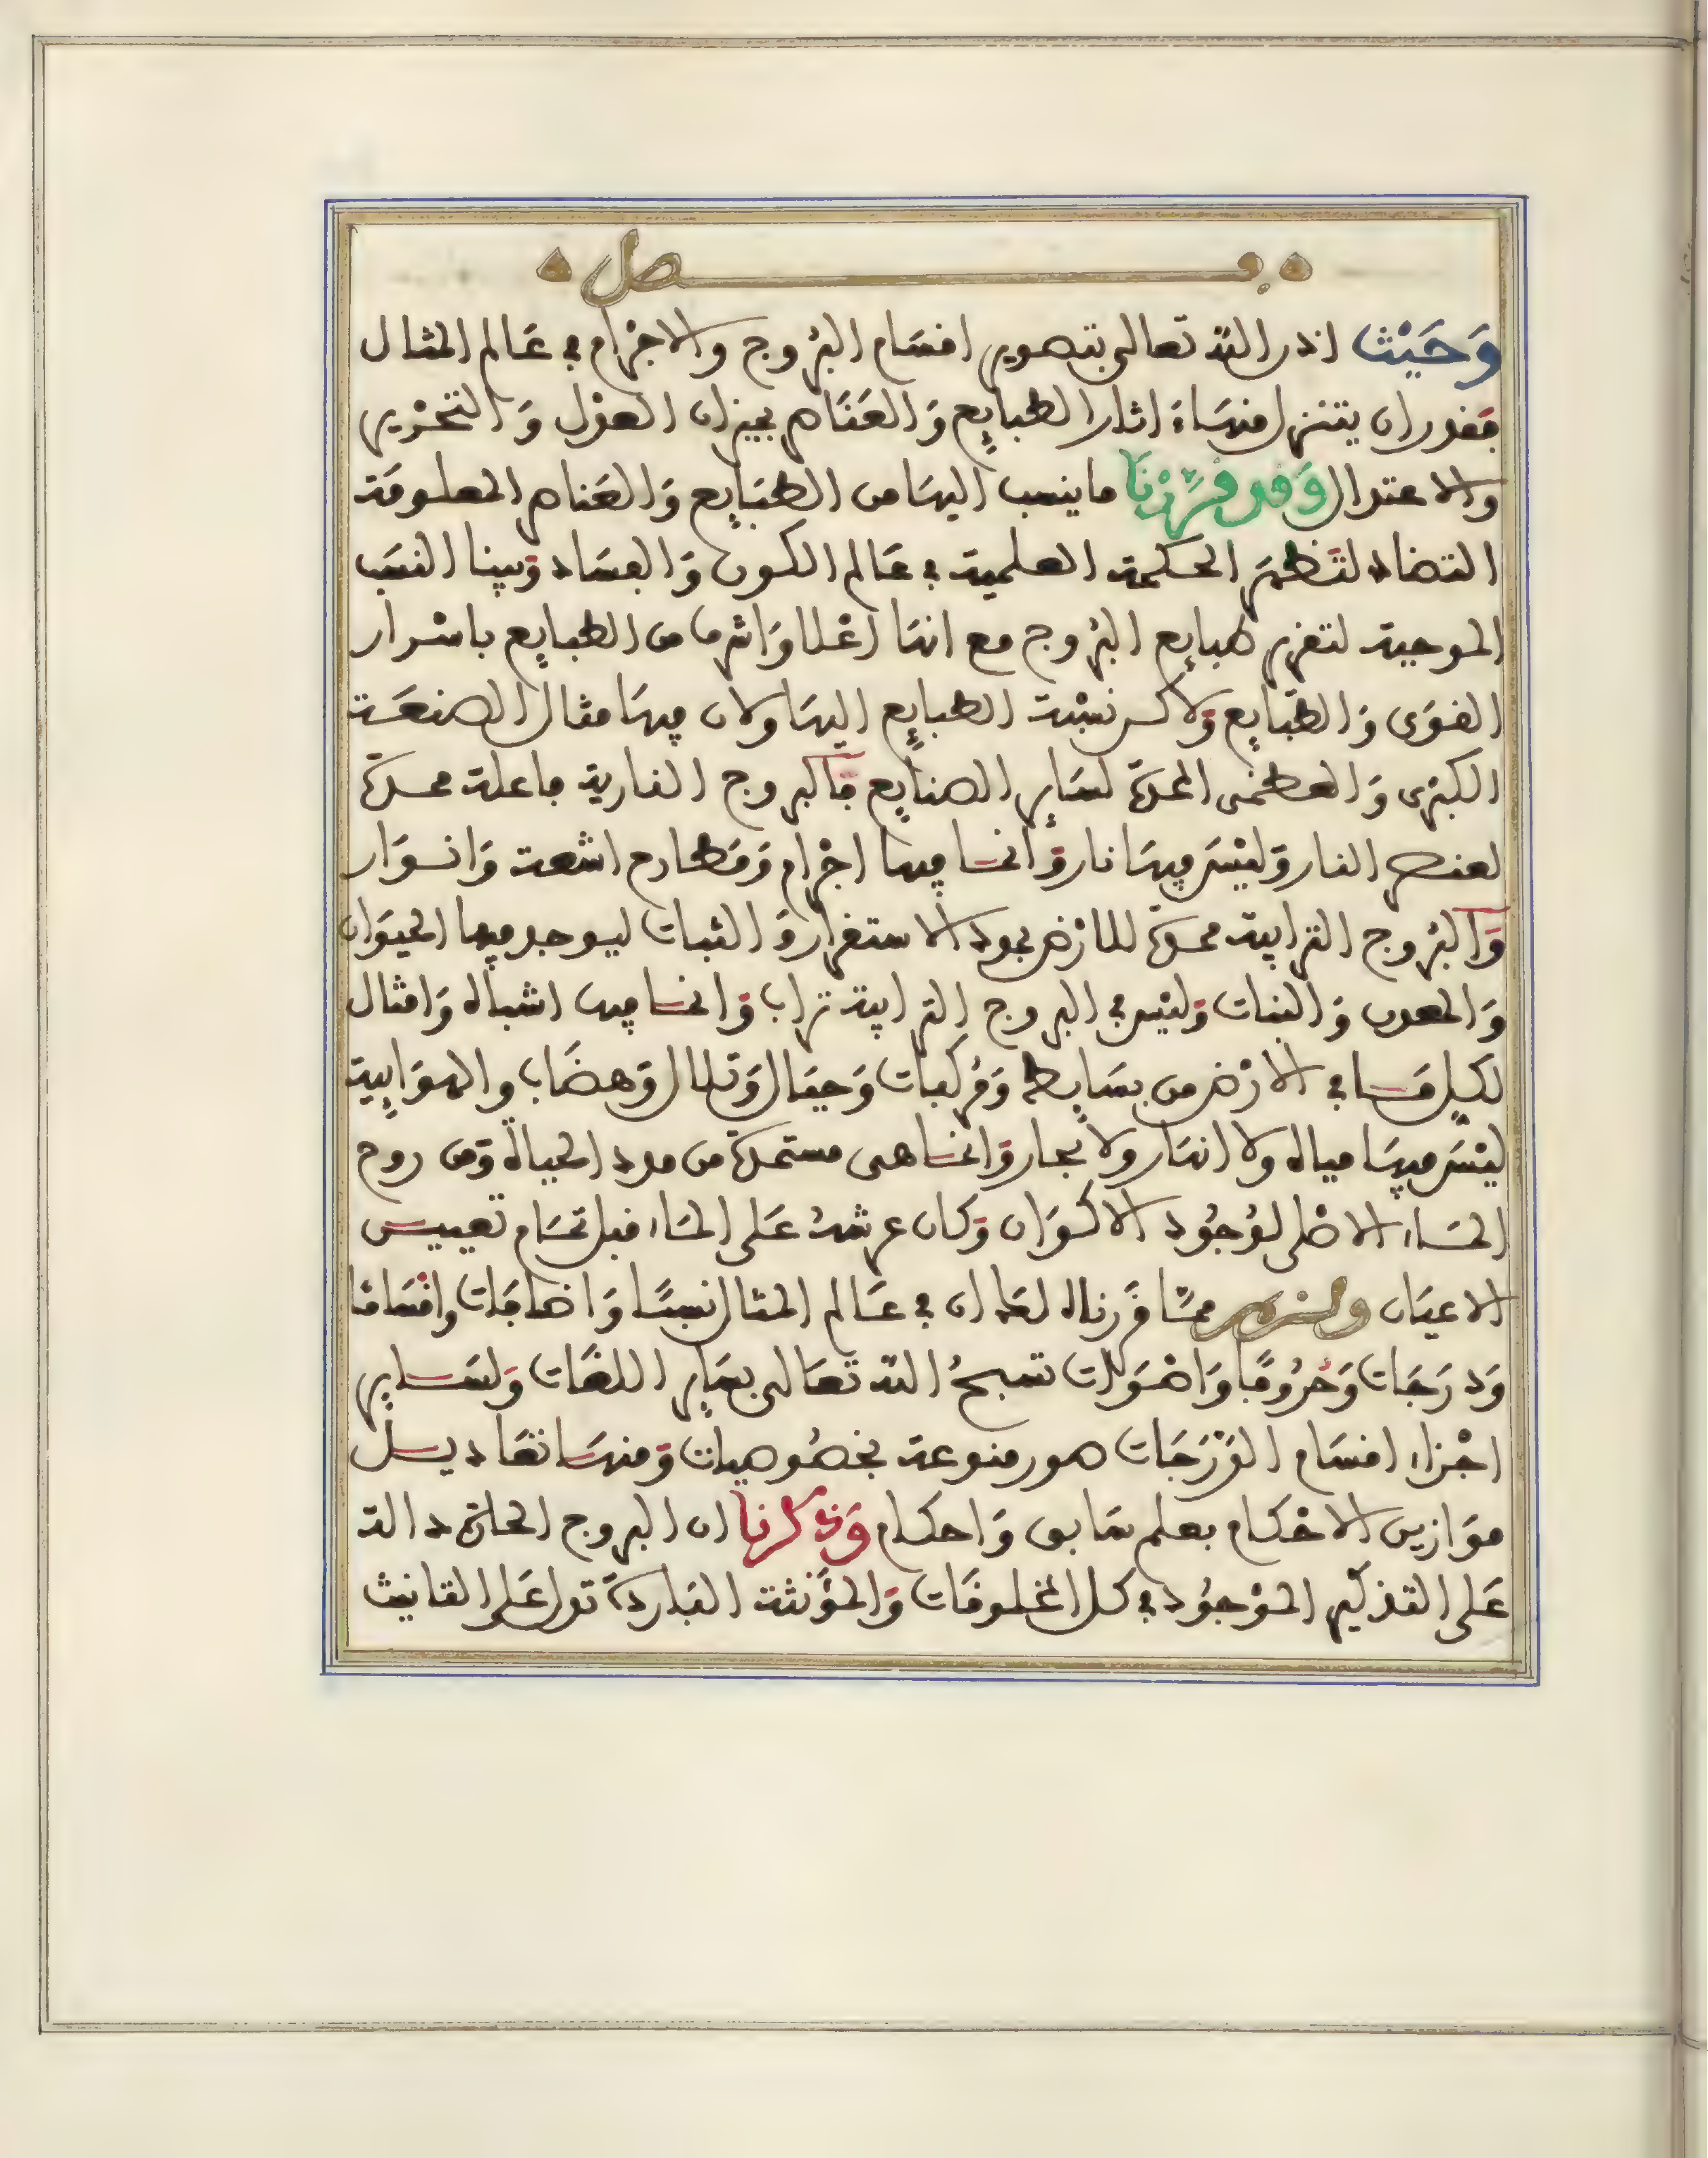 فصل
وَحَيْث اذن الله تعالى بتصوير اقسَام البُروج والاجْرام في عَالم المثال
فقدر ان يتنزل منهَا اثار الطبايع وَالعَناصر بميزان العدْل وَالتحْرير
والاعتدال وَقد قرَّرْنَا ما ينسب اليهَا من الطبَايع وَالعَناصر المعلومَة
التضاد لتَظهرَ الحكمة العلمية في عَالم الكون وَالفسَاد وَبينا النسَب
الموجبة لتقرير طبايع البُروج مع انهَا اعْلا وَاشرف من الطبايع باسْرار
القوَى وَالطبَايع وَلاكن نسْبة الطبايع اليهَا ولان فيهَا مثال الصنعَة
الكبْرى وَالعظمَى الممدة لسَاير الصنايع فَالبروج النارية فاعلة ممدة
لعنصر النار وَليْسَ فيهَا نار وَانما فيها اجْرام وَمَطارح اشعة وَانوَار
وَالبُروج الترابية ممدة للارْض بمواد الاستقرار وَالثبات ليوجد فيها الحيَوان
وَالمعدن وَالنبات وَليْس في البروج الترابية تراب وَانما فيها اشباه وَامثال
لكل مَا في الارْض من بسَايط وَمُركبات وَجبَال وَتلال وَهضَاب والهوَايية
ليْسَ فيهَا مياه ولا انهَار ولا بحار وَانما هى مستمدة من مدد الحياة وَمن روح
المَاء الاصْلى لوُجُود الاكوَان وَكان عرشهُ عَلى المَاء قبل تمَام تعيين
الاعيَان ممَّا قرَرناه لعَل ان في عَالم المثال نسبًا وَاضافَات واقسَامًا
وَدرَجَات وَحرُوفًا وَاصْوَات تسبحُ الله تعَالى بسَاير اللغَات وَلسَاير
اجْزاء اقسَام الدَرَجَات صور منوعة بخصُوصيات وَمنهَا تعَاديل
موَازين الاحْكام بعلم سَابق وَاحكام وَذكرنا ان البروج الحارة دالة
عَلى التذكير الموْجُود في كل المخلوقَات وَالمؤنثة البَاردة تدل عَلى التانيث